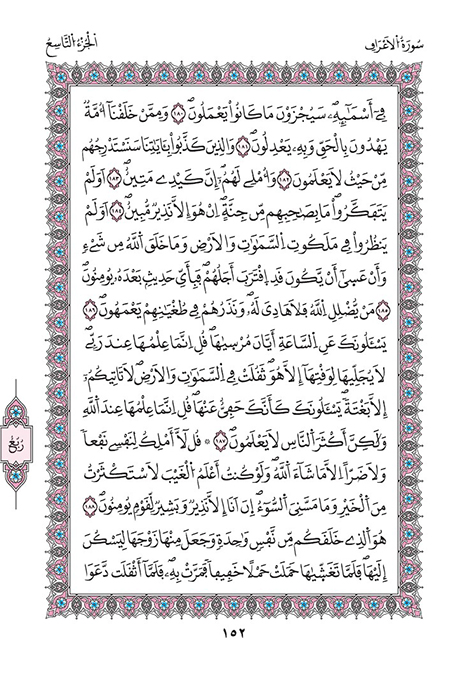 سُورَةُ الْأَعْرَافِ
الْجُزْءُ التَّاسِعُ
فِےٓ أَسْمَٰٓئِهِۦۖ سَيُجْزَوْنَ مَا كَانُوا۟ يَعْمَلُونَۖ ١٨٠ وَمِمَّنْ خَلَقْنَآ أُمَّةٞ
يَهْدُونَ بِالْحَقِّ وَبِهِۦ يَعْدِلُونَۖ ١٨١ وَالذِينَ كَذَّبُوا۟ بِـَٔايَٰتِنَا سَنَسْتَدْرِجُهُم
مِّنْ حَيْثُ لَا يَعْلَمُونَۖ ١٨٢ وَأُمْلِے لَهُمُۥٓۖ إِنَّ كَيْدِے مَتِينٌۖ ١٨٣ اَوَلَمْ
يَتَفَكَّرُوا۟ۖ مَا بِصَاحِبِهِم مِّن جِنَّةٍۖ اِنْ هُوَ إِلَّا نَذِيرٞ مُّبِينٌۖ ١٨٤ اَوَلَمْ
يَنظُرُوا۟ فِے مَلَكُوتِ السَّمَٰوَٰتِ وَالَارْضِ وَمَا خَلَقَ اَللَّهُ مِن شَےْءٖ
وَأَنْ عَسَىٰٓ أَنْ يَّكُونَ قَدِ اِقْتَرَبَ أَجَلُهُمْۖ فَبِأَيِّ حَدِيثِۢ بَعْدَهُۥ يُومِنُونَۖ
١٨٥ مَنْ يُّضْلِلِ اِللَّهُ فَلَا هَادِيَ لَهُۥۖ وَنَذَرُهُمْ فِے طُغْيَٰنِهِمْ يَعْمَهُونَۖ ١٨٦
يَسْـَٔلُونَكَ عَنِ اِلسَّاعَةِ أَيَّانَ مُرْسَىٰهَاۖ قُلِ اِنَّمَا عِلْمُهَا عِندَ رَبِّے
لَا يُجَلِّيهَا لِوَقْتِهَآ إِلَّا هُوَۖ ثَقُلَتْ فِے اِلسَّمَٰوَٰتِ وَالَارْضِۖ لَا تَاتِيكُمُۥٓ
إِلَّا بَغْتَةٗۖ يَسْـَٔلُونَكَ كَأَنَّكَ حَفِيٌّ عَنْهَاۖ قُلِ اِنَّمَا عِلْمُهَا عِندَ اَللَّهِ
وَلَٰكِنَّ أَكْثَرَ اَلنَّاسِ لَا يَعْلَمُونَۖ ١٨٧ قُل لَّآ أَمْلِكُ لِنَفْسِے نَفْعاٗ
وَلَا ضَرّاً اِلَّا مَا شَآءَ اَللَّهُۖ وَلَوْ كُنتُ أَعْلَمُ اُلْغَيْبَ لَاسْتَكْثَرْتُ
مِنَ اَلْخَيْرِ وَمَا مَسَّنِيَ اَلسُّوٓءُۖ انَ اَنَآ إِلَّا نَذِيرٞ وَبَشِيرٞ لِّقَوْمٖ يُومِنُونَۖ ١٨٨
هُوَ اَلذِے خَلَقَكُم مِّن نَّفْسٖ وَٰحِدَةٖ وَجَعَلَ مِنْهَا زَوْجَهَا لِيَسْكُنَ
إِلَيْهَاۖ فَلَمَّا تَغَشَّىٰهَا حَمَلَتْ حَمْلًا خَفِيفاٗ فَمَرَّتْ بِهِۦۖ فَلَمَّآ أَثْقَلَت دَّعَوَا
رُبُع
١٥٢